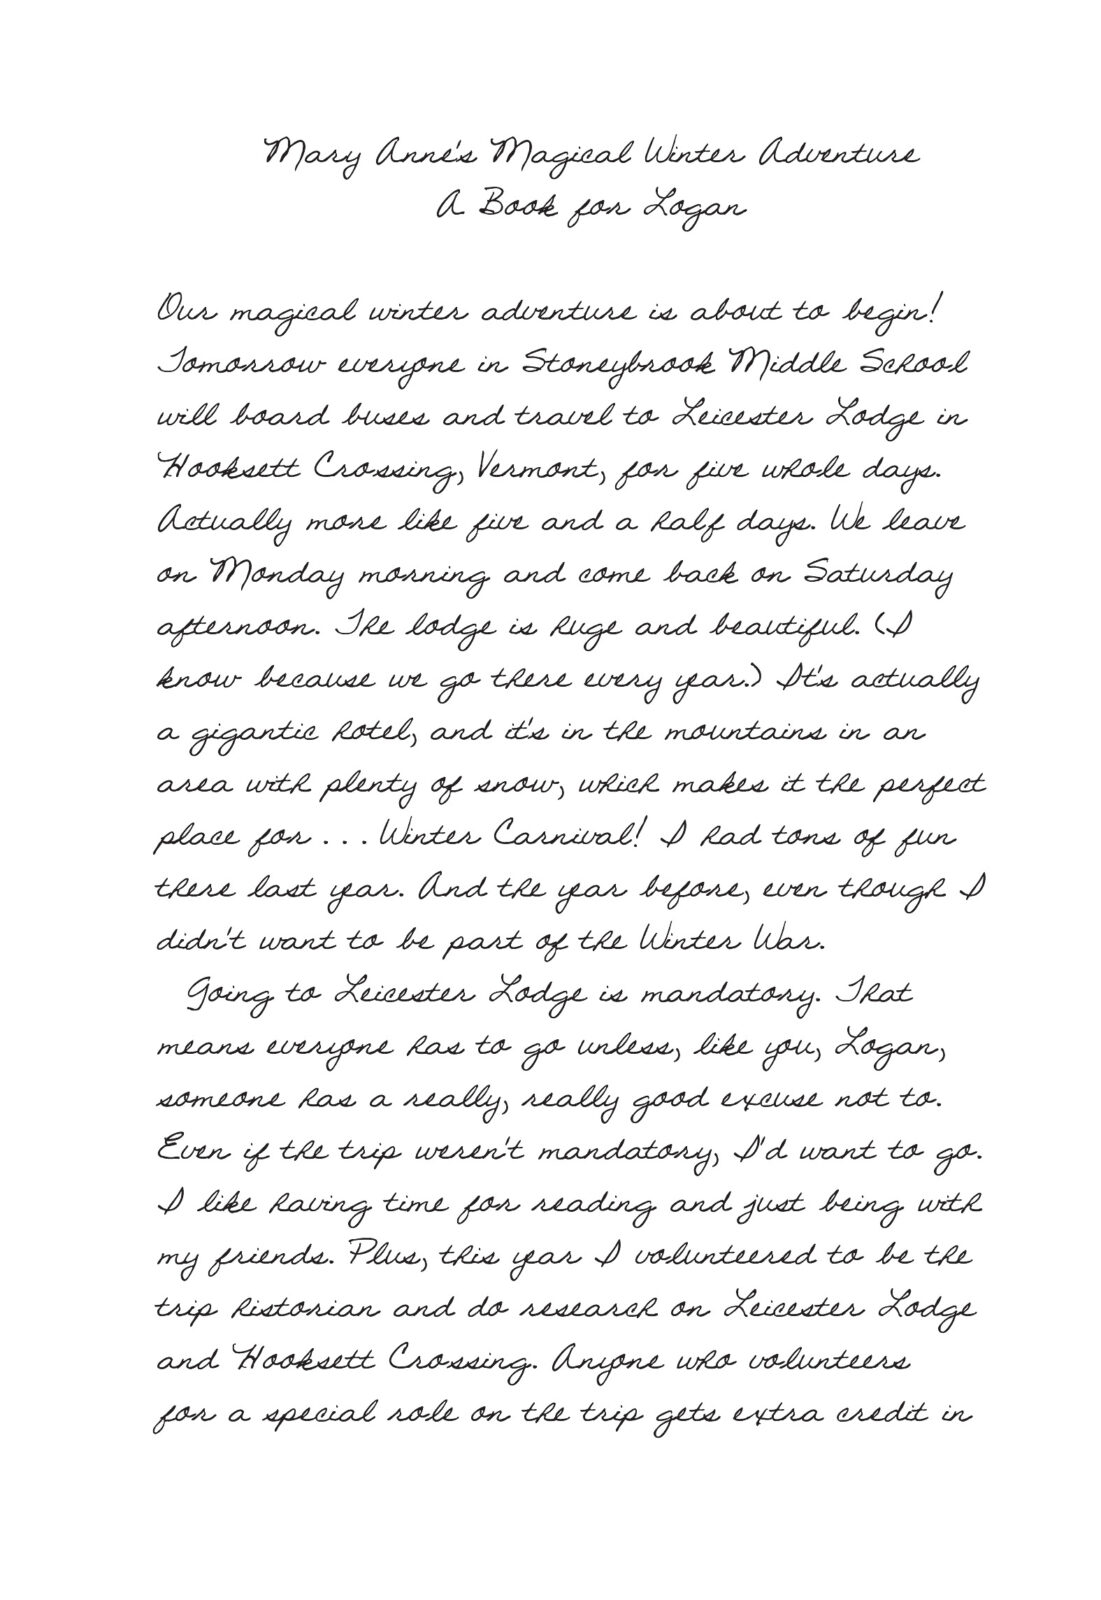 Mary Anne's Magical Winter Adventure
A Book for Logan
Our magical winter adventure is about to begin!
Tomorrow everyone in Stoneybrook Middle School
will board buses and travel to Leicester Lodge in
Hooksett Crossing, Vermont, for five whole days.
Actually more like five and a half days. We leave
on Monday morning and come back on Saturday
afternoon. The lodge is huge and beautiful. (I
know because we go there every year.) It's actually
a gigantic hotel, and it's in the mountains in an
area with plenty of snow, which makes it the perfect
place for . . . Winter Carnival! I had tons of fun
there last year. And the year before, even though I
didn't want to be part of the Winter War.
Going to Leicester Lodge is mandatory. That
means everyone has to go unless, like you, Logan,
someone has a really, really good excuse not to.
Even if the trip weren't mandatory, I'd want to go.
I like having time for reading and just being with
my friends. Plus, this year I volunteered to be the
trip historian and do research on Leicester Lodge
and Hooksett Crossing. Anyone who volunteers
for a special role on the trip gets extra credit in